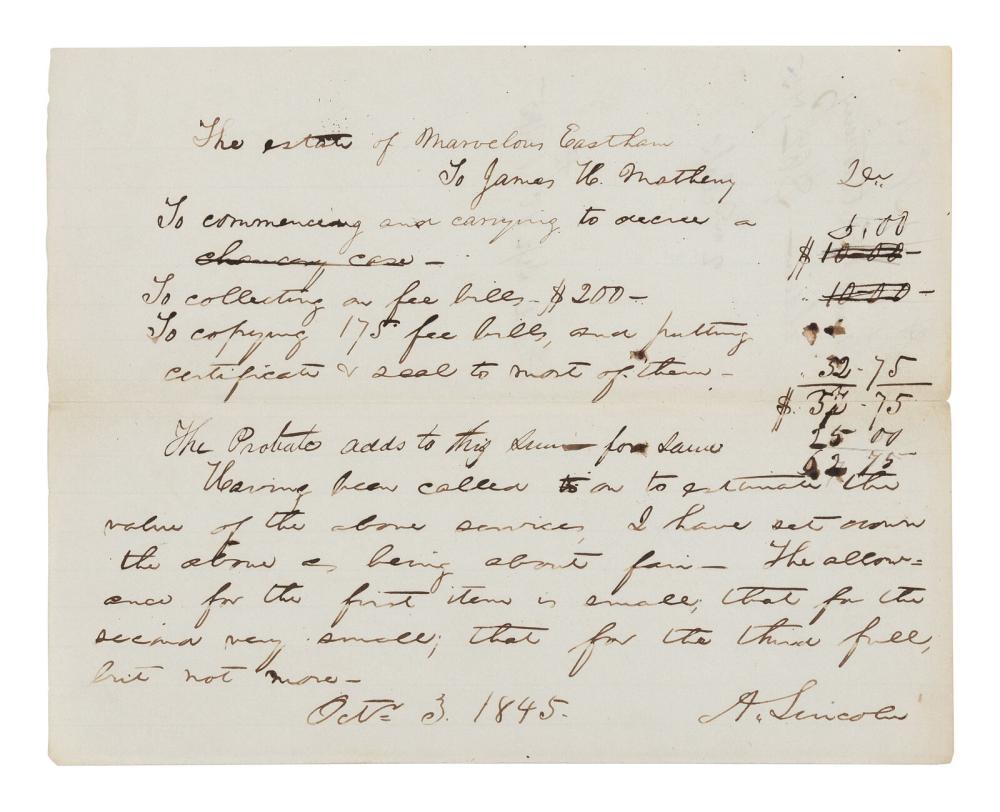 The estate of Marvelous Eastham
To James H. Matheny Dr.
To commencing and carrying to decree a 5.00
chancery case — $10-00-
To collecting on fee bills - $200 — 10-00 -
To copying 175 fee bills, and putting
certificate & seal to most of them - 52-75
$ 57-75
The Probate adds to this sum for same 25 00
62 75
Having been called to on to estimate the
value of the above services, I have set down
the above as being about fair — The allow=
ance for the first item is small; that for the
second very small; that for the third full,
but not more —
Octr 3. 1845. A. Lincoln